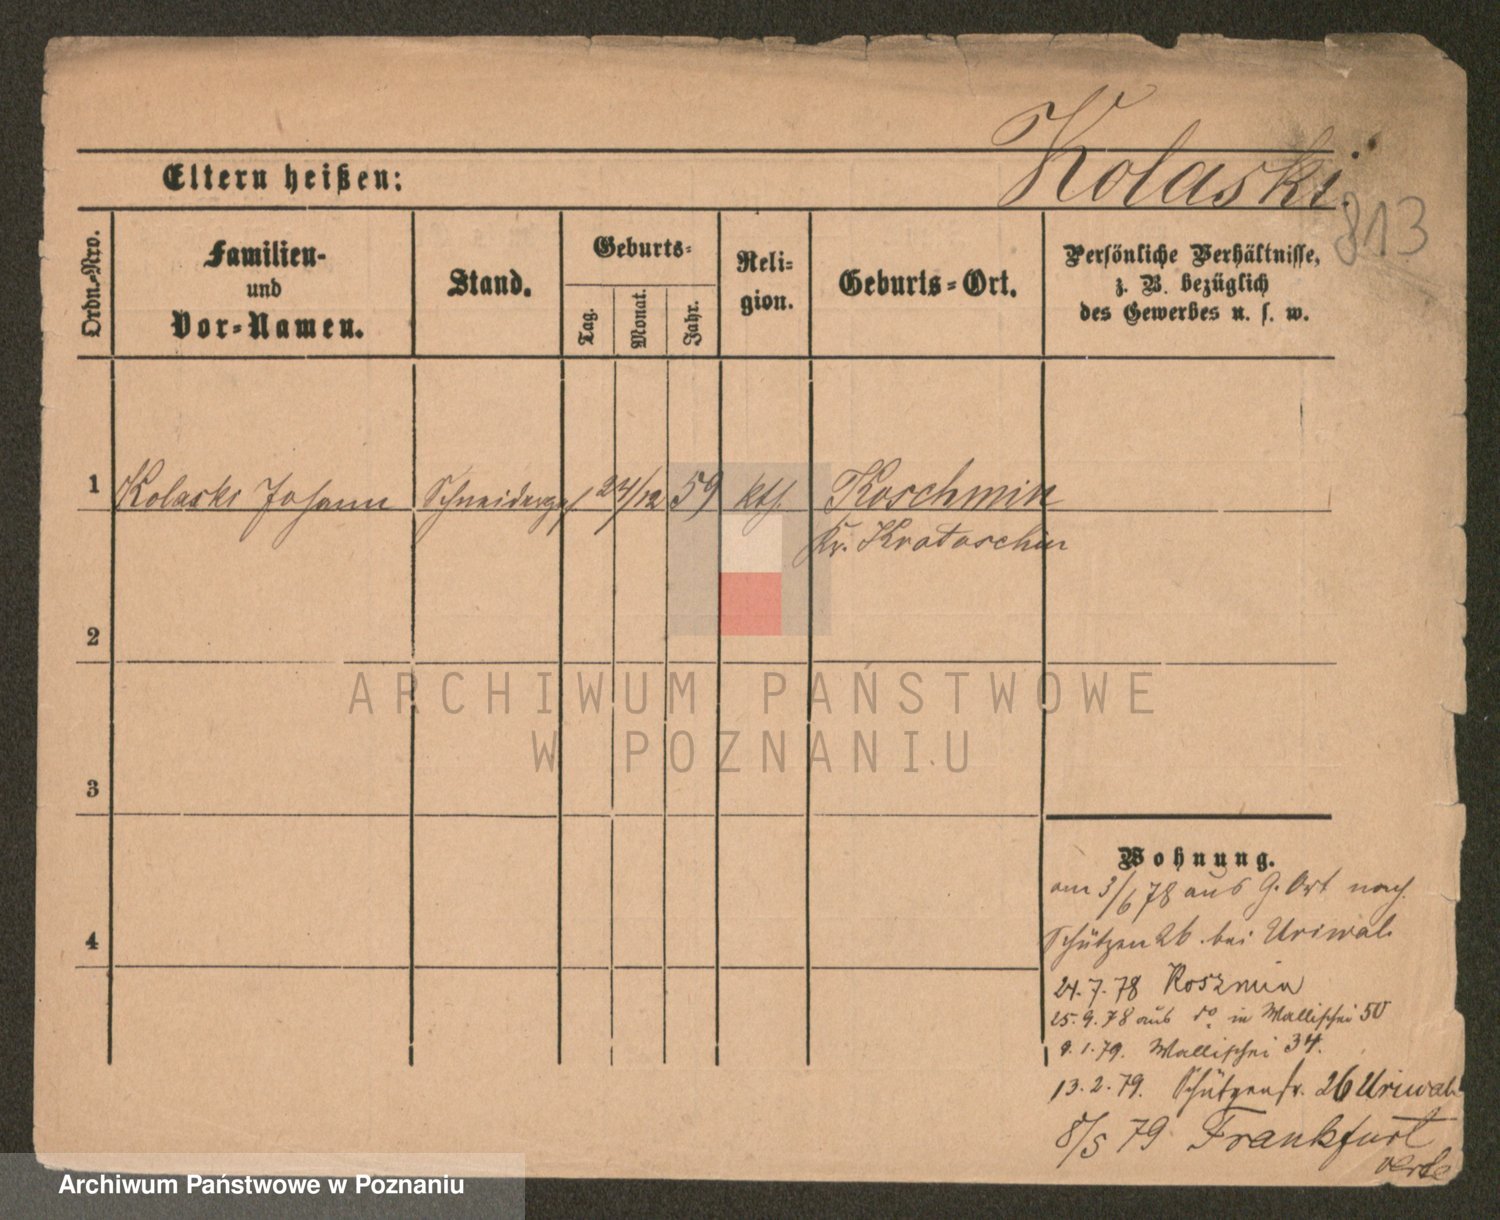 Kolaski.
Eltern heißen:
813
Ordn.-Nro.
Familien-
und
Vor-Namen.
Stand.
Geburts-
Tag.
Monat.
Jahr.
Reli-
gion.
Geburts-Ort.
Persönliche Verhältnisse,
z. B. bezüglich
des Gewerbes u. s. w.
1 Kolaski Johann Schneiderges 24/12 59 kth. Koschmin
Kr. Krotoschin
2
ARCHIWUM PAŃSTWOWE
W POZNANIU
3
Wohnung.
am 3/6 78 aus G. Ort nach
4
Schützen 26 bei Uriwal.
24.7.78 Koszmin
25.9.78 aus do in Wallischei 50
9.1.79. Wallischei 34.
13.2.79. Schützenstr. 26 Uriwal
8/5 79 Frankfurt
Archiwum Państwowe w Poznaniu